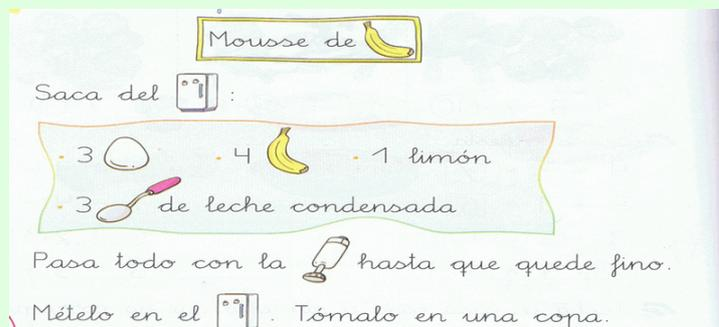 Mousse de
Saca del :
· 3 · 4 · 1 limón
· 3 de leche condensada
Pasa todo con la hasta que quede fino.
Mételo en el . Tómalo en una copa.